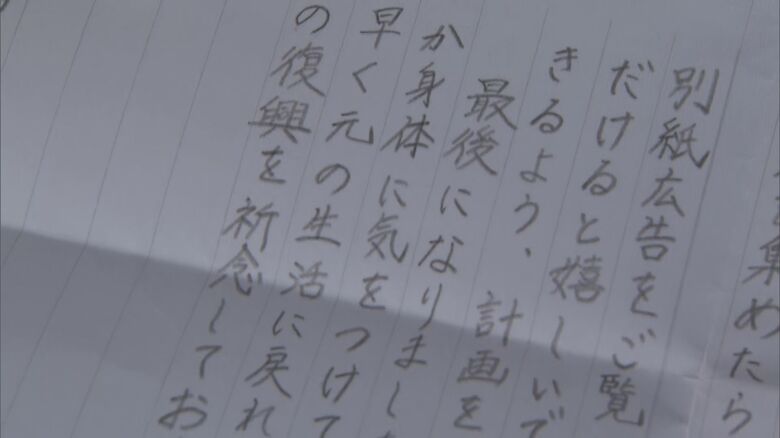 集めたら
別紙広告をご覧
だけると嬉しいで
きるよう、計画を
最後になりまし
か身体に気をつけて
早く元の生活に戻れ
の復興を祈念してお